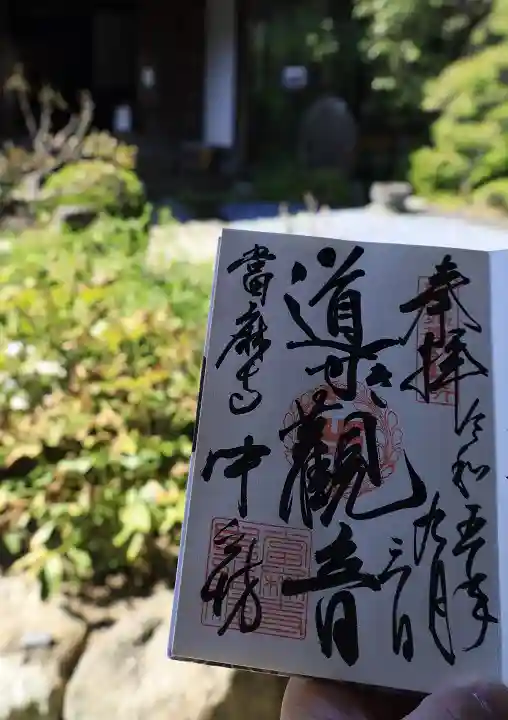 奉拝
令和五年
九月三日
導き觀音
當麻寺
中之坊